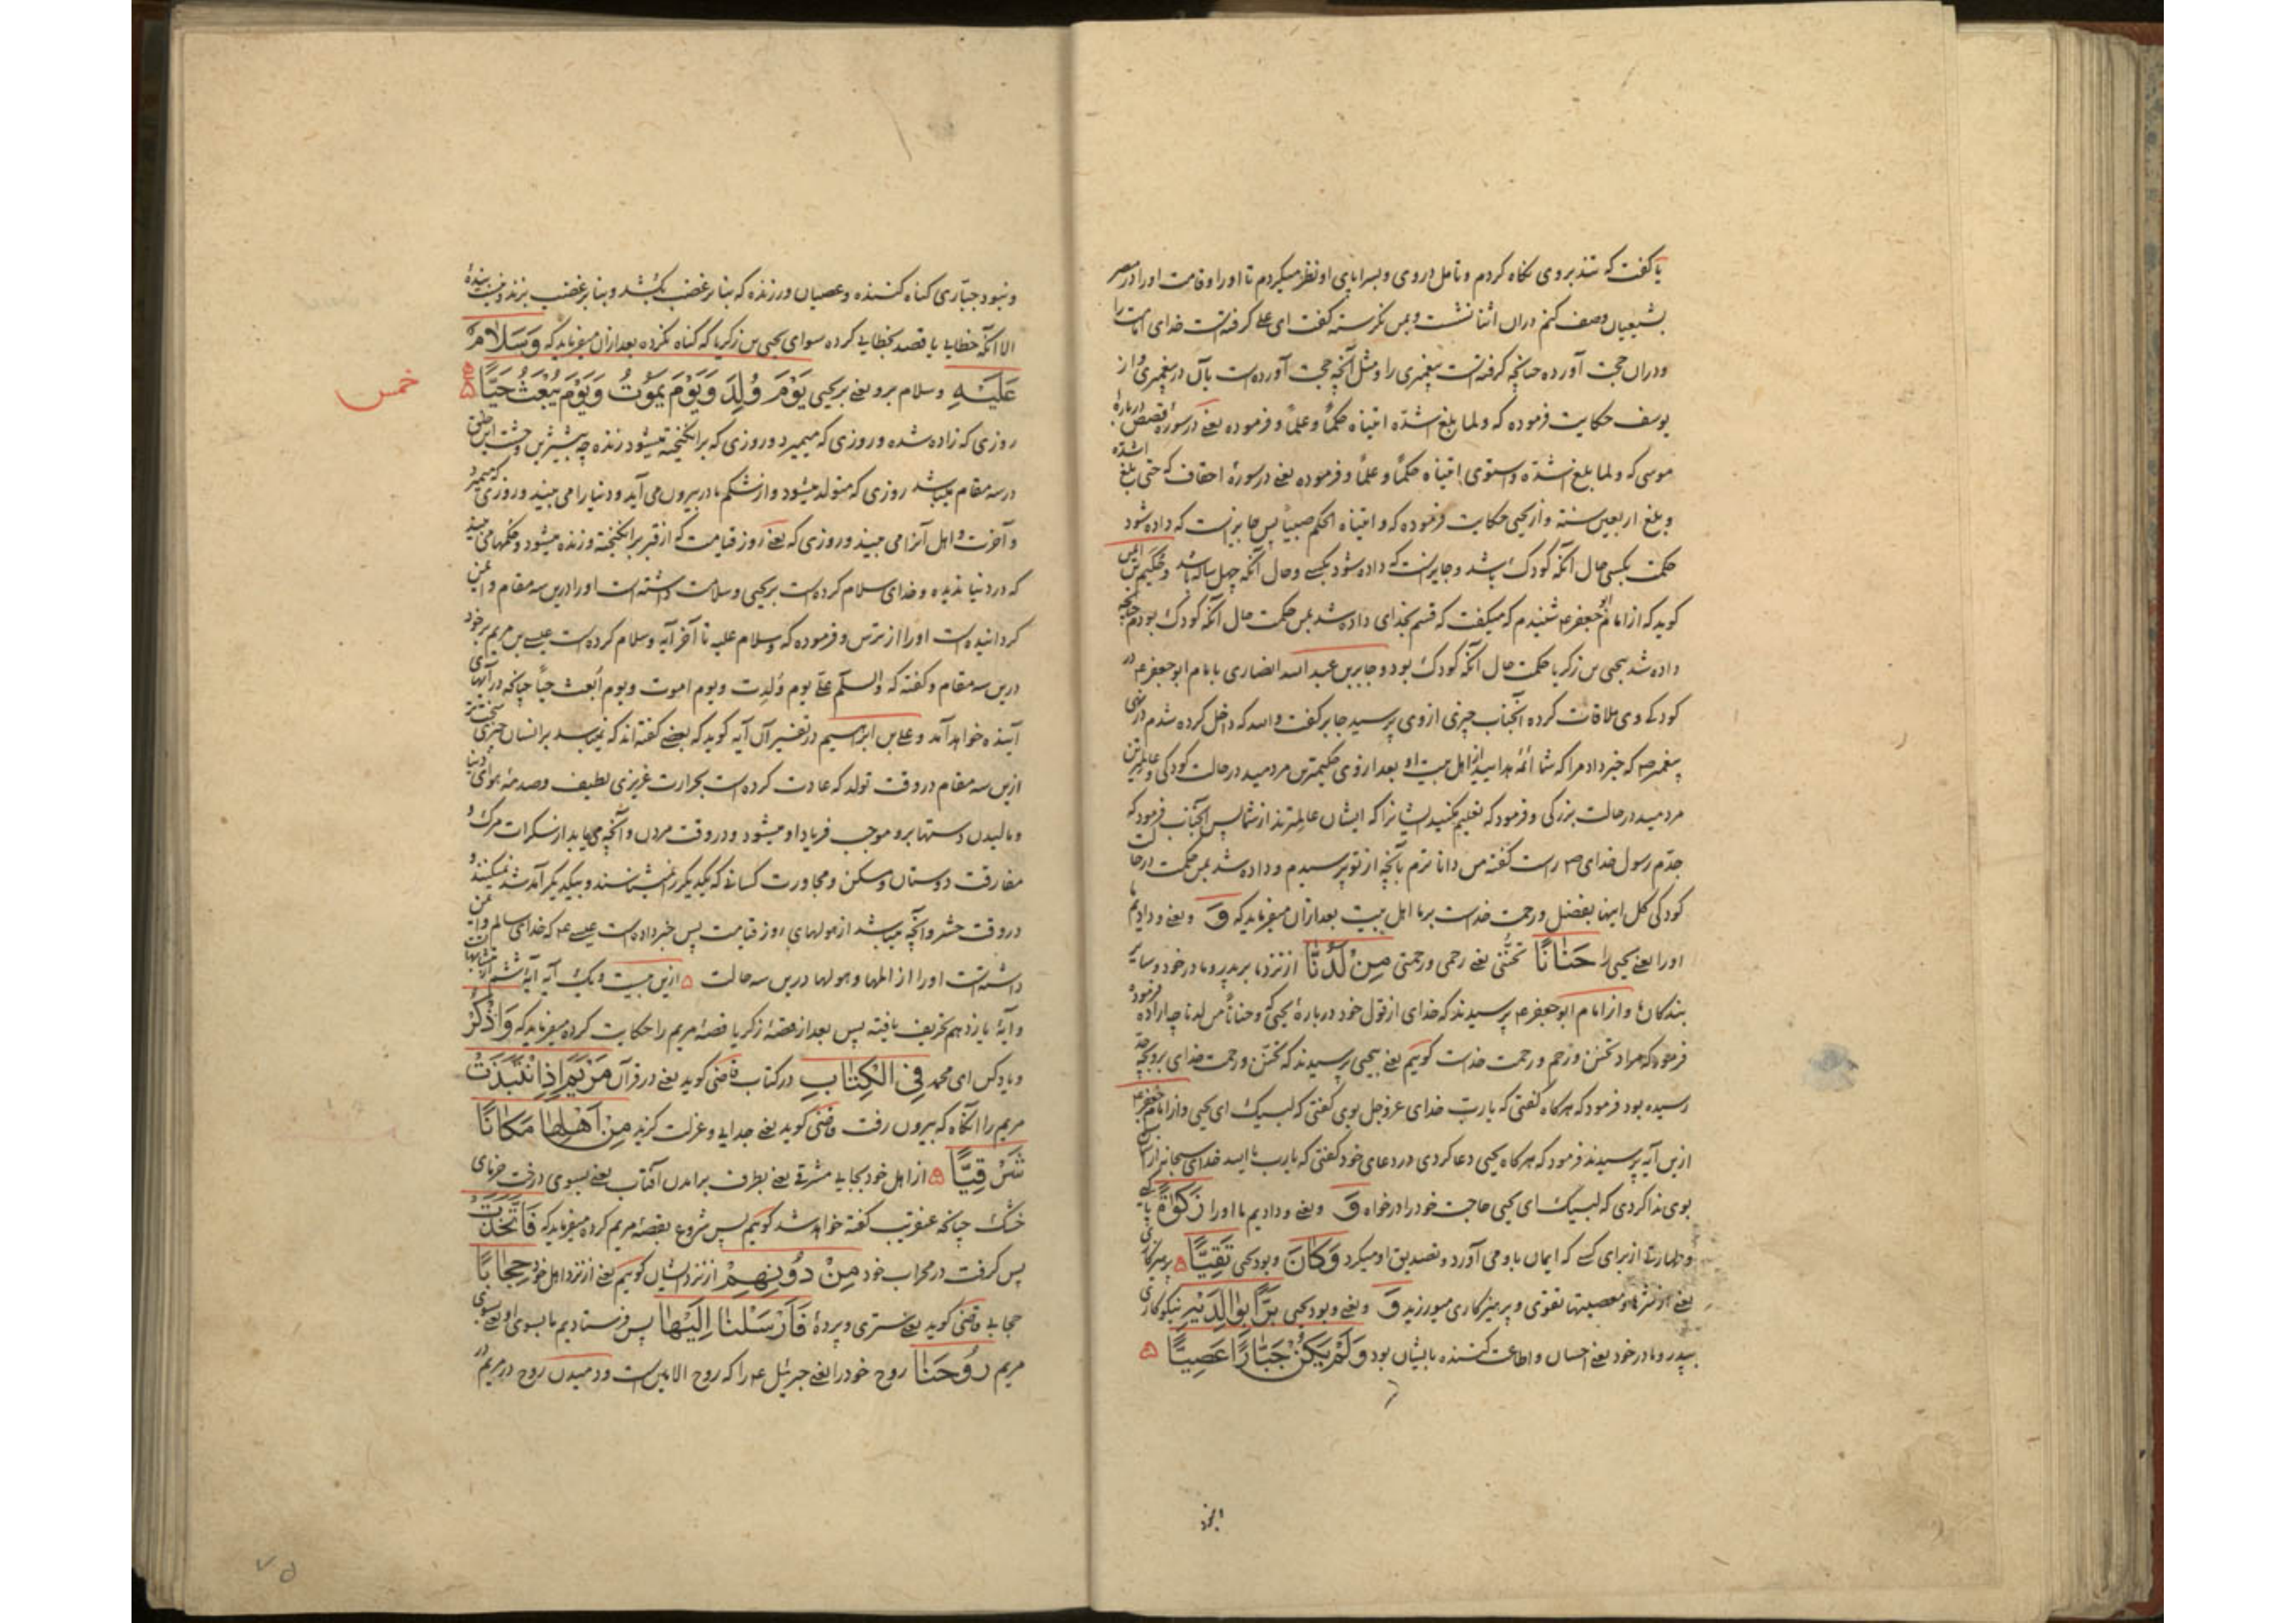 یا گفت که تند بروی نگاه کردم و تامل در روی و بسراپای او نظر میکردم تا او را و قامت او را در مصر
بشیعیان وصف کنم دران اثنا نشست و بمن نگرسته گفت ای علی گرفته است خدای امامت را
و دران حجت آورده چنانچه گرفته است پیغمبری را و مثل آنچه حجت آورده است بآن در پیغمبری و از
یوسف حکایت فرموده که ولما بلغ اشده اتیناه حکمًا وعلمًا و فرموده یعنی در سورهٔ قصص دربارهٔ
موسی که ولما بلغ اشده واستوی اتیناه حکمًا وعلمًا و فرموده یعنی در سورهٔ احقاف که حتی بلغ اشده
وبلغ اربعین سنة و از یحیی حکایت فرموده که و اتیناه الحکم صبیًا پس جایز است که داده شود
حکمت بکسی حال آنکه کودک باشد و جایز است که داده شود بکسی و حال آنکه چهل ساله باشد و حکیم بن
گوید که از امام ابو جعفر ع شنیدم که میگفت که قسم بخدای داده شد بمن حکمت حال آنکه کودک بودم چنانچه
داده شد بیحیی بن زکریا حکمت حال آنکه کودک بود و جابر بن عبد الله انصاری با امام ابو جعفر ع در
کودکی وی ملاقات کرده آنجناب چیزی از وی پرسید جابر گفت والله که داخل کرده نشدم در نهی
پیغمبر ص که خبر داد مرا که شما ائمهٔ هدایید از اهل بیت او بعد از وی حکیمترین مردمید در حالت کودکی و عالمترین
مردمید در حالت بزرگی و فرمود که تعلیم مکنید ایشانرا که ایشان عالمترند از شما پس آنجناب فرمود که
جدم رسول خدای ص راست گفته من داناترم بآنچه از تو پرسیدم و داده شد بمن حکمت در حالت
کودکی کل اینها بفضل و رحمت خداست بر ما اهل بیت بعد ازان میفرماید که وَ و یعنی و دادیم ما
او را یعنی یحیی را حَنَانًا تحننی یعنی رحمی و رحمتی مِنْ لَدُنَّا از نزد ما بر پدر و مادر خود و سایر
بندگان ما و از امام ابو جعفر ع پرسیدند که خدای از قول خود دربارهٔ یحیی که وحنانًا من لدنا چه اراده فرموده
فرمود که مراد تحنن و ترحم و رحمت خداست گوییم یعنی بیحیی پرسیدند که تحنن و رحمت خدای برو بچه حد
رسیده بود فرمود که هرگاه گفتی که یا ربّ خدای عزوجل بوی گفتی که لبیک ای یحیی و از امام جعفر ع
ازین آیه پرسیدند فرمود که هرگاه یحیی دعا کردی در دعای خود گفتی که یا رب یا الله خدای سبحانه از آسمان
بوی ندا کردی که لبیک ای یحیی حاجت خود را درخواه وَ و یعنی و دادیم ما او را زَكٰوةً پاکی
و طهارتی از برای کسی که ایمان باو می آورد و تصدیق او میکرد وَكَانَ و بود یحیی تَقِيًّا پرهیزکاری
یعنی از شرها و معصیتها تقوی و پرهیزکاری میورزید وَ و یعنی و بود یحیی بَرًّا بِوَالِدَيْهِ نیکوکاری
بپدر و مادر خود یعنی احسان و اطاعت کننده بایشان بود وَلَمْ يَكُنْ جَبَّارًا عَصِيًّا
و نبود جباری گناه کننده و عصیان ورزنده که بنا بر غضب بکشد و بنا بر غضب بزند و نیست بندهٔ
الا آنکه خطایی یا قصد بخطایی کرده سوای یحیی بن زکریا که گناه نکرده بعد ازان میفرماید که وَسَلَامٌ
عَلَيْهِ و سلام برو یعنی بر یحیی يَوْمَ وُلِدَ وَيَوْمَ يَمُوتُ وَيَوْمَ يُبْعَثُ حَيًّا
خمس
روزی که زاده شده و روزی که میمیرد و روزی که برانگیخته میشود زنده چه بیشترین وحشت این خلق
در سه مقام میباشد روزی که متولد میشود و از شکم مادر بیرون می آید و دنیا را می بیند و روزی که میمیرد
و آخرت و اهل آنرا می بیند و روزی که یعنی روز قیامت که از قبر برانگیخته و زنده میشود و حکمها می بیند
که در دنیا ندیده و خدای سلام کرده است بر یحیی و سلامت داشته است او را درین سه مقام و ایمن
گردانیده است او را از ترس و فرموده که وسلام علیه تا آخر آیه و سلام کرده است عیسی بن مریم بر خود
درین سه مقام و گفته که والسلم علیّ یوم ولدت ویوم اموت ویوم ابعث حیًا چنانچه در آیهای
آینده خواهد آمد و علی بن ابراهیم در تفسیر آن آیه گوید که بعضی گفته اند که نمیرسد بر انسان چیزی سخت تر
ازین سه مقام در وقت تولد که عادت کرده است بحرارت غریزی لطیف و صدمهٔ هوای دنیا
و مالیدن دستها برو موجب فریاد او میشود و در وقت مردن و آنچه می یابد از سکرات مرگ و
مفارقت دوستان و مسکن و مجاورت کسانی که یکدیگر را نمیشناسند و بیکدیگر آمد شد نمیکنند و
در وقت حشر و آنچه میباشد از هولهای روز قیامت پس خبر داده است عیسی ع که خدای سالم و ایمن
داشته است او را از المها و هولها درین سه حالت ازین بیست و یک آیه آیهٔ ششم از متشابهات است
و آیهٔ یازدهم تحریف یافته پس بعد از قصهٔ زکریا قصهٔ مریم را حکایت کرده میفرماید که وَاذْكُرْ
و یاد کن ای محمد فِي الْكِتَابِ در کتاب قاضی گوید یعنی در قرآن مَرْيَمَ إِذِ انْتَبَذَتْ
مریم را آنگاه که بیرون رفت قاضی گوید یعنی جدایی و عزلت گزید مِنْ أَهْلِهَا مَكَانًا
شَرْقِيًّا از اهل خود بجایی مشرقی یعنی بطرف برآمدن آفتاب یعنی بسوی درخت خرمای
خشک چنانچه عنقریب گفته خواهد شد گوییم پس شروع بقصهٔ مریم کرده میفرماید که فَاتَّخَذَتْ
پس گرفت در محراب خود مِنْ دُونِهِمْ از نزد ایشان گوییم یعنی از نزد اهل خود حِجَابًا
حجابی قاضی گوید یعنی ستری و پردهٔ فَأَرْسَلْنَا إِلَيْهَا پس فرستادیم ما بسوی او یعنی بسوی
مریم رُوحَنَا روح خود را یعنی جبرئیل ع را که روح الامین است و دمیدن روح در مریم در